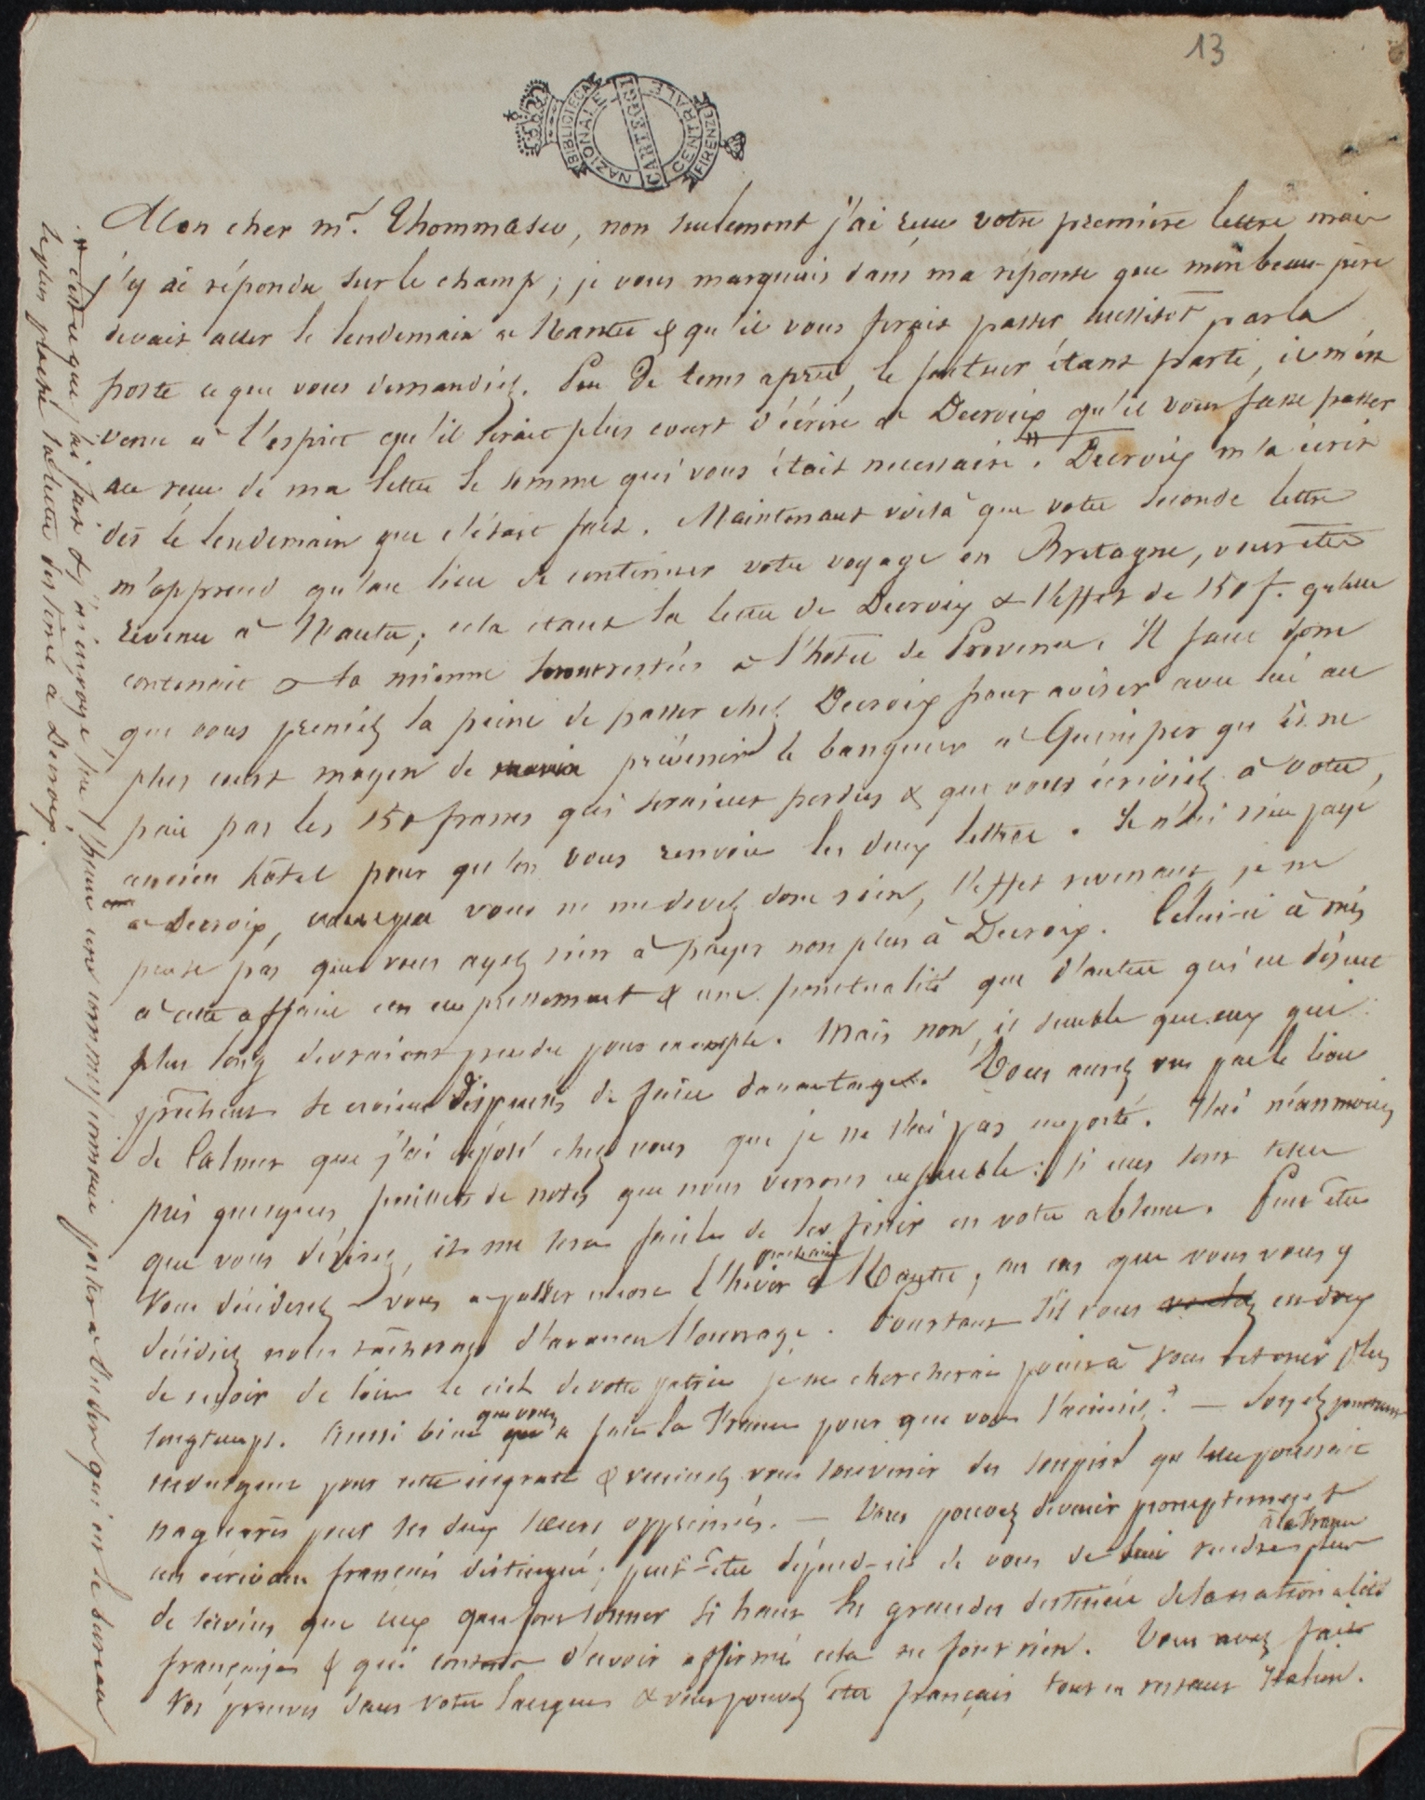 13
BIBLIOTECA NAZIONALE CENTRALE FIRENZE
CARTEGGI
Mon cher mr. Thommaseo, non seulement j'ai reçu votre première lettre mais
j'y ai répondu sur le champ; je vous marquais dans ma réponse que mon beau-père
devait aller le lendemain à Nantes & qu'il vous ferait passer aussitôt par la
poste ce que vous demandiez. Peu de tems après, le facteur étant parti, il m'est
venu à l'esprit qu'il serait plus court d'écrire à Decroix qu'il vous fasse passer
au reçu de ma lettre la somme qui vous était nécessaire ". Decroix m'a écrit
dès le lendemain que c'était fait. Maintenant voilà que votre seconde lettre
m'apprend qu'au lieu de continuer votre voyage en Bretagne, vous êtes
revenu à Nantes; cela étant la lettre de Decroix & l'effet de 150 f. qu'elle
contenait & la mienne sont restées à l'hôtel de Provence. Il faut donc
que vous preniez la peine de passer chez Decroix pour aviser avec lui au
plus court moyen de prévenir le banquier à Quimper qu'il ne
paie pas les 150 francs qui seraient perdus & que vous écriviez à votre
ancien hôtel pour qu'on vous renvoie les deux lettres. Je n'ai rien payé
à Decroix, vous ne me devez donc rien, l'effet revenant, je ne
pense pas que vous ayez rien à payer non plus à Decroix. Celui-ci a mis
à cette affaire un empressement & une ponctualité que d'autres qui en disent
plus long devraient prendre pour exemple. Mais non, il semble que ceux qui
prêchent se croient dispensés de faire davantage. Vous aurez vu par le livre
de Calmer que j'ai déposé chez vous que je ne l'ai pas emporté. J'ai néanmoins
pris quelques feuillets de notes que nous verrons ensemble: si elles sont telles
que vous désirez, il me sera facile de les finir en votre absence. Peut être
vous déciderez-vous à passer encore l'hiver prochain à Nantes, au cas que vous vous y
décidiez nous tâcherons d'avancer l'ouvrage. Pourtant s'il vous en doux
de revoir de loin le ciel de votre patrie je ne chercherai point à vous retenir plus
longtemps. Aussi bien que vous a fait la France pour que vous l'aimiez? — Soyez pourtant
indulgent pour cette ingrate & veuillez vous souvenir des soupirs qu'elle poussait
naguères pour ses deux sœurs opprimées. — Vous pouvez devenir promptement
un écrivain français distingué; peut-être dépend-il de vous de rendre à la France plus
de services que ceux qui font sonner si haut les grandes destinées de la nationalité
française & qui contents d'avoir affirmé cela ne font rien. Vous avez fait
vos preuves dans votre langue & vous pouvez être français tout en restant Italien.
" c'est ce que j'ai fait & j'ai envoyé sur l'heure un commissionnaire porter à Oudon qui est le bureau
le plus proche la lettre destinée à Decroix.